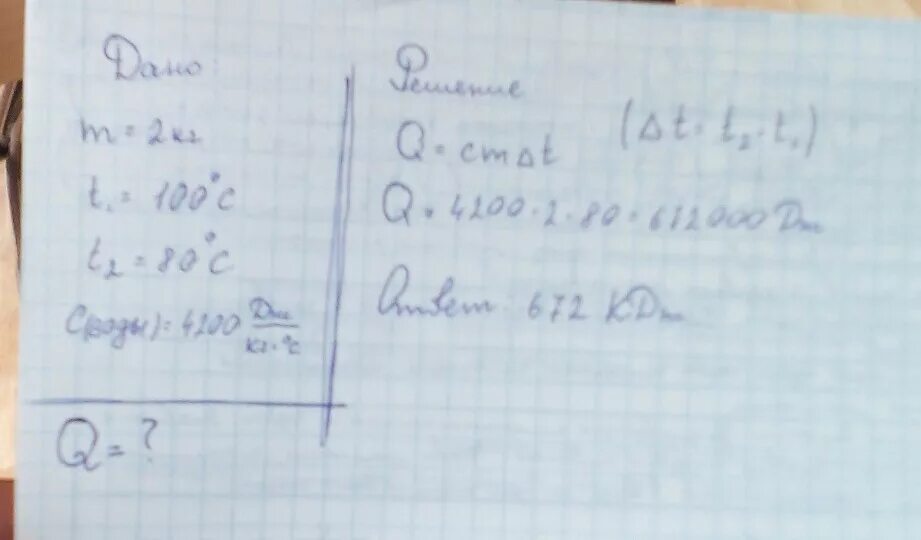 Дано:
m = 2кг
t₁ = 100°C
t₂ = 80°C
C(воды) = 4200 Дж/кг·°C
Q = ?
Решение
Q = cmΔt (Δt = t₂ - t₁)
Q = 4200·2·80 = 672000 Дж
Ответ: 672 КДж